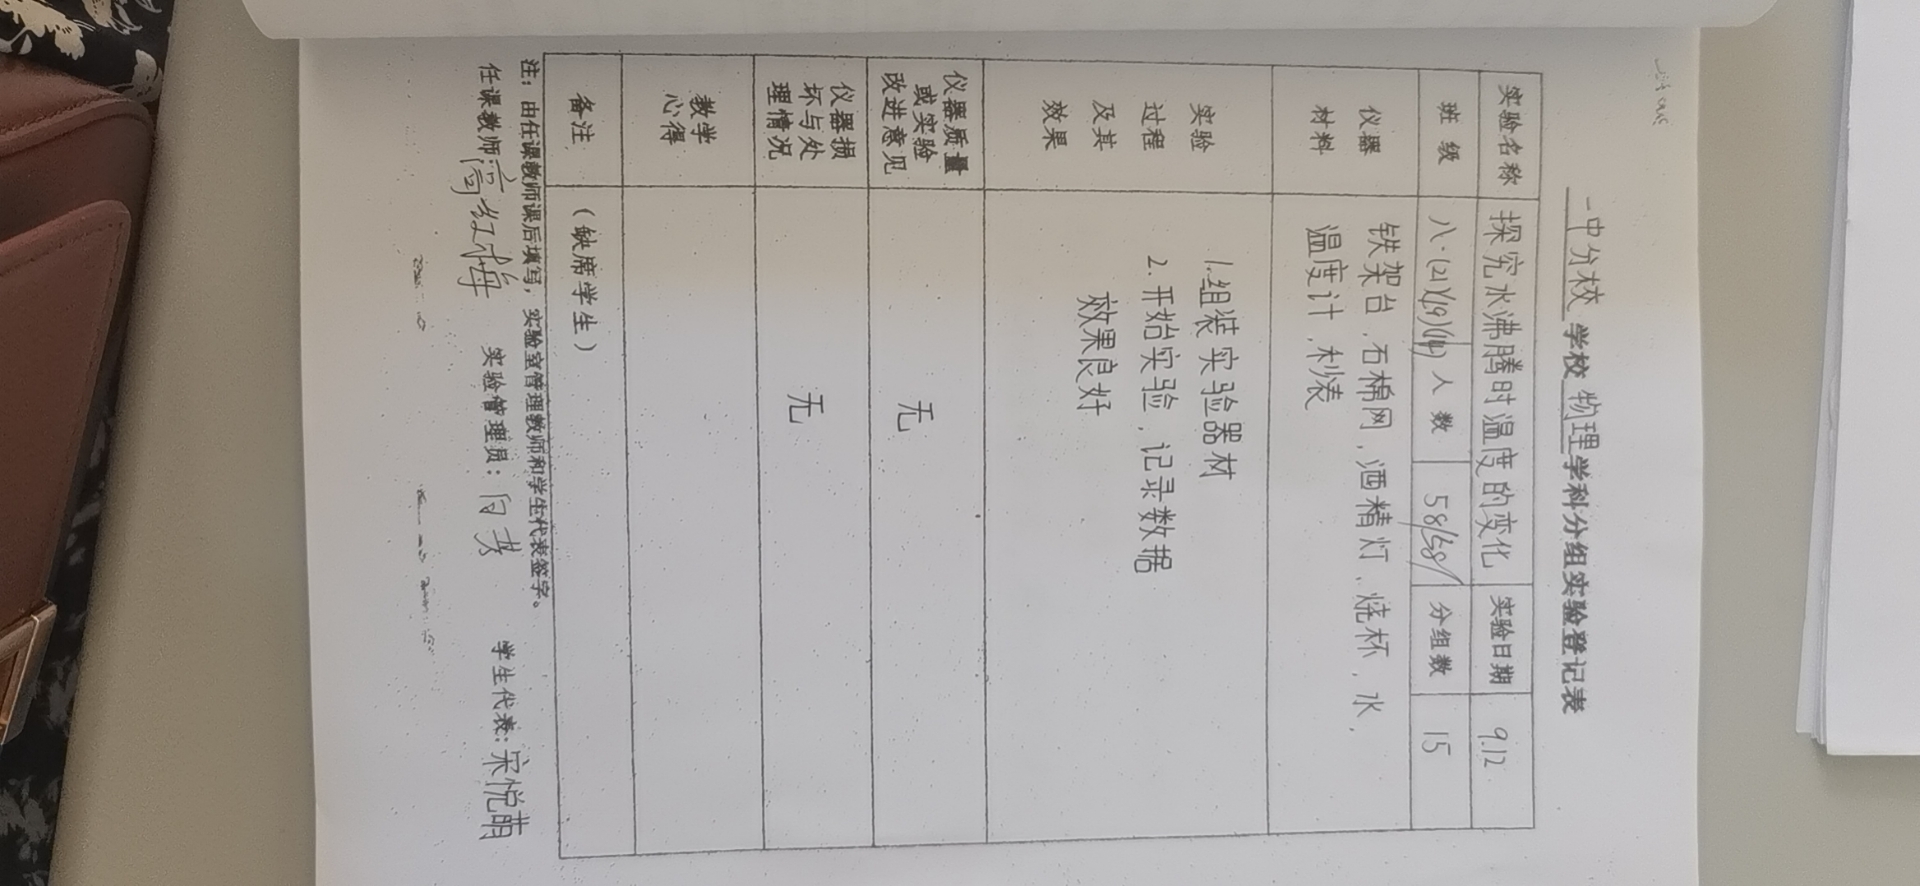 一中分校 学校 物理 学科分组实验登记表
实验名称 探究水沸腾时温度的变化 实验日期 9.12
班级 八.(21)(19)(14) 人数 58/58/ 分组数 15
仪器
材料
铁架台、石棉网、酒精灯、烧杯、水、
温度计、秒表
实验
过程
及其
效果
1.组装实验器材
2.开始实验、记录数据
效果良好
仪器质量
或实验
改进意见
无
仪器损
坏与处
理情况
无
教学
心得
备注 (缺席学生)
注:由任课教师课后填写,实验室管理教师和学生代表签字。
任课教师:高红梅 实验管理员: 学生代表:宋悦萌